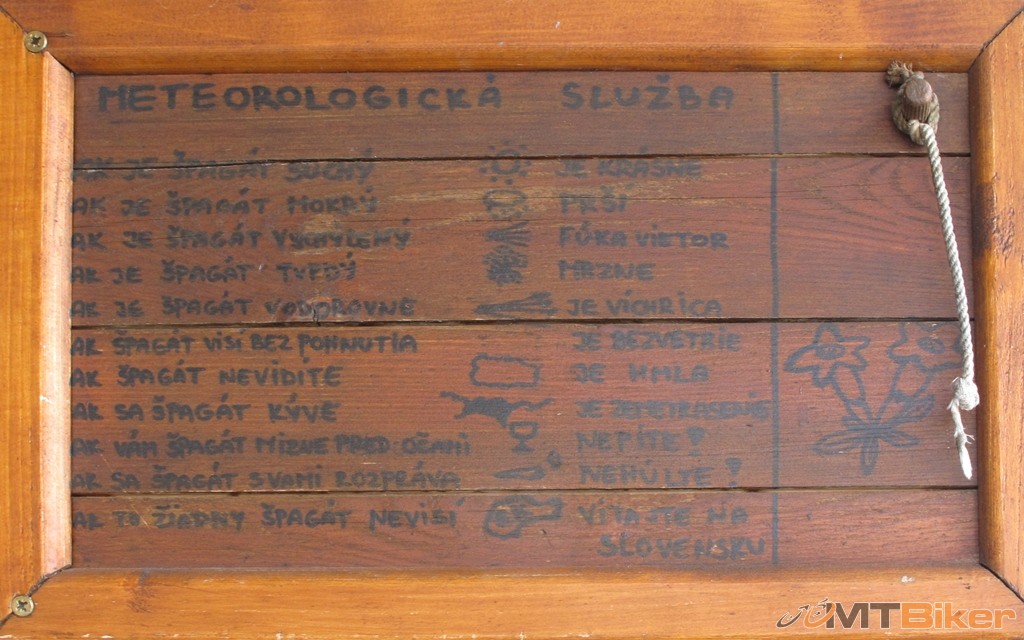 METEOROLOGICKÁ SLUŽBA
AK JE ŠPAGÁT SUCHÝ JE KRÁSNE
AK JE ŠPAGÁT MOKRÝ PRŠÍ
AK JE ŠPAGÁT VYCHÝLENÝ FÚKA VIETOR
AK JE ŠPAGÁT TVRDÝ MRZNE
AK JE ŠPAGÁT VODOROVNE JE VÍCHRICA
AK ŠPAGÁT VISÍ BEZ POHNUTIA JE BEZVETRIE
AK ŠPAGÁT NEVIDÍTE JE HMLA
AK SA ŠPAGÁT KÝVE JE ZEMETRASENIE
AK VÁM ŠPAGÁT MIZNE PRED OČAMI NEPITE!
AK SA ŠPAGÁT S VAMI ROZPRÁVA NEHÚLTE!
AK TO ŽIADNY ŠPAGÁT NEVISÍ VÍTAJTE NA
SLOVENSKU
JOJ MTBiker